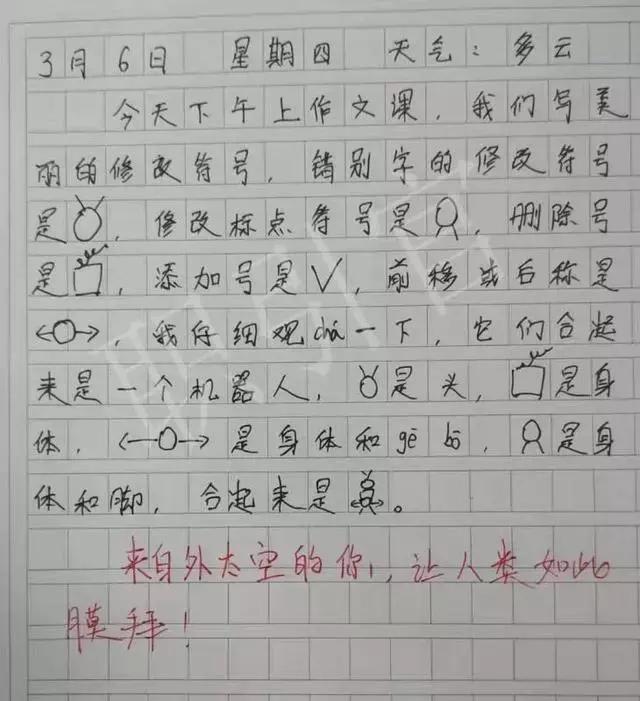 3月6日 星期四 天气:多云
今天下午上作文课,我们写美
丽的修改符号,错别字的修改符号
是,修改标点符号是,删除号
是,添加号是√,前移或后称是
,我仔细观chá一下,它们合起
来是一个机器人,是头,是身
体,是身体和gē bō,是身
体和脚,合起来是。
来自外太空的你,让人类如此
膜拜!